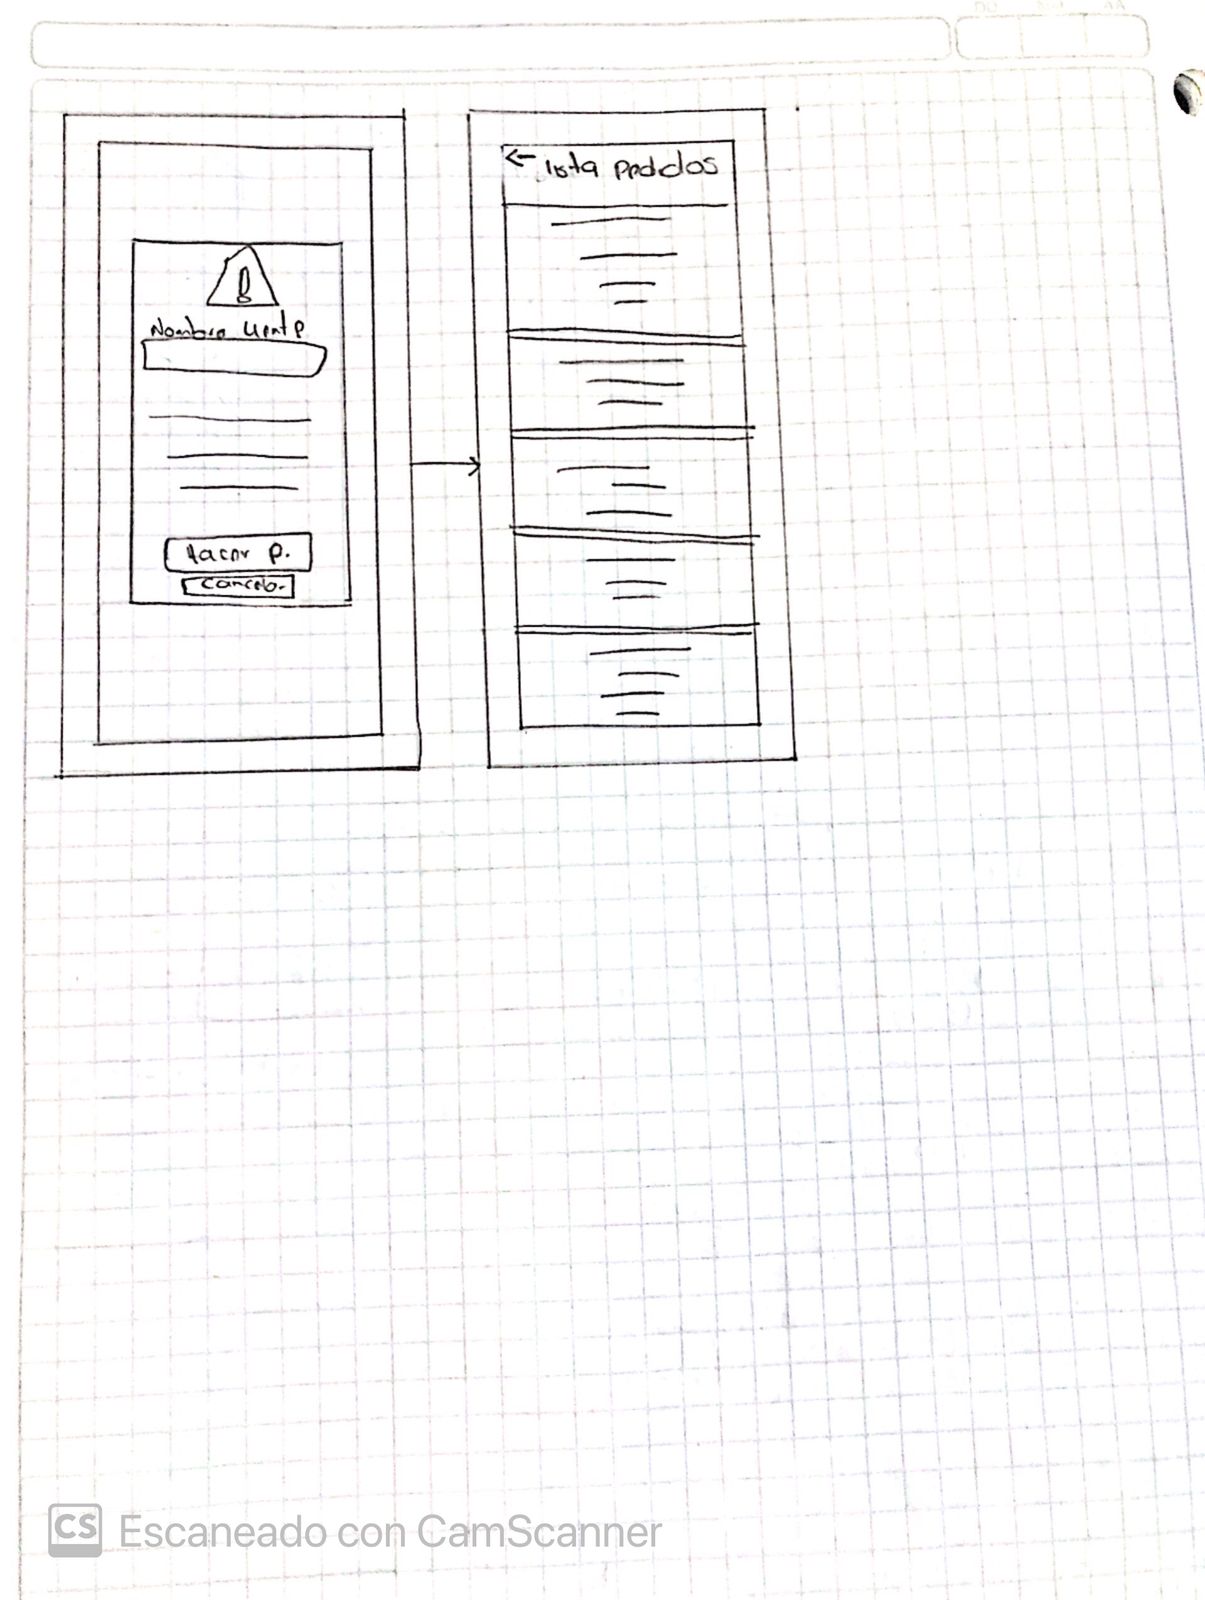 Nombre Cliente
Hacer P.
Cancelo.
← lista pedidos
CS Escaneado con CamScanner